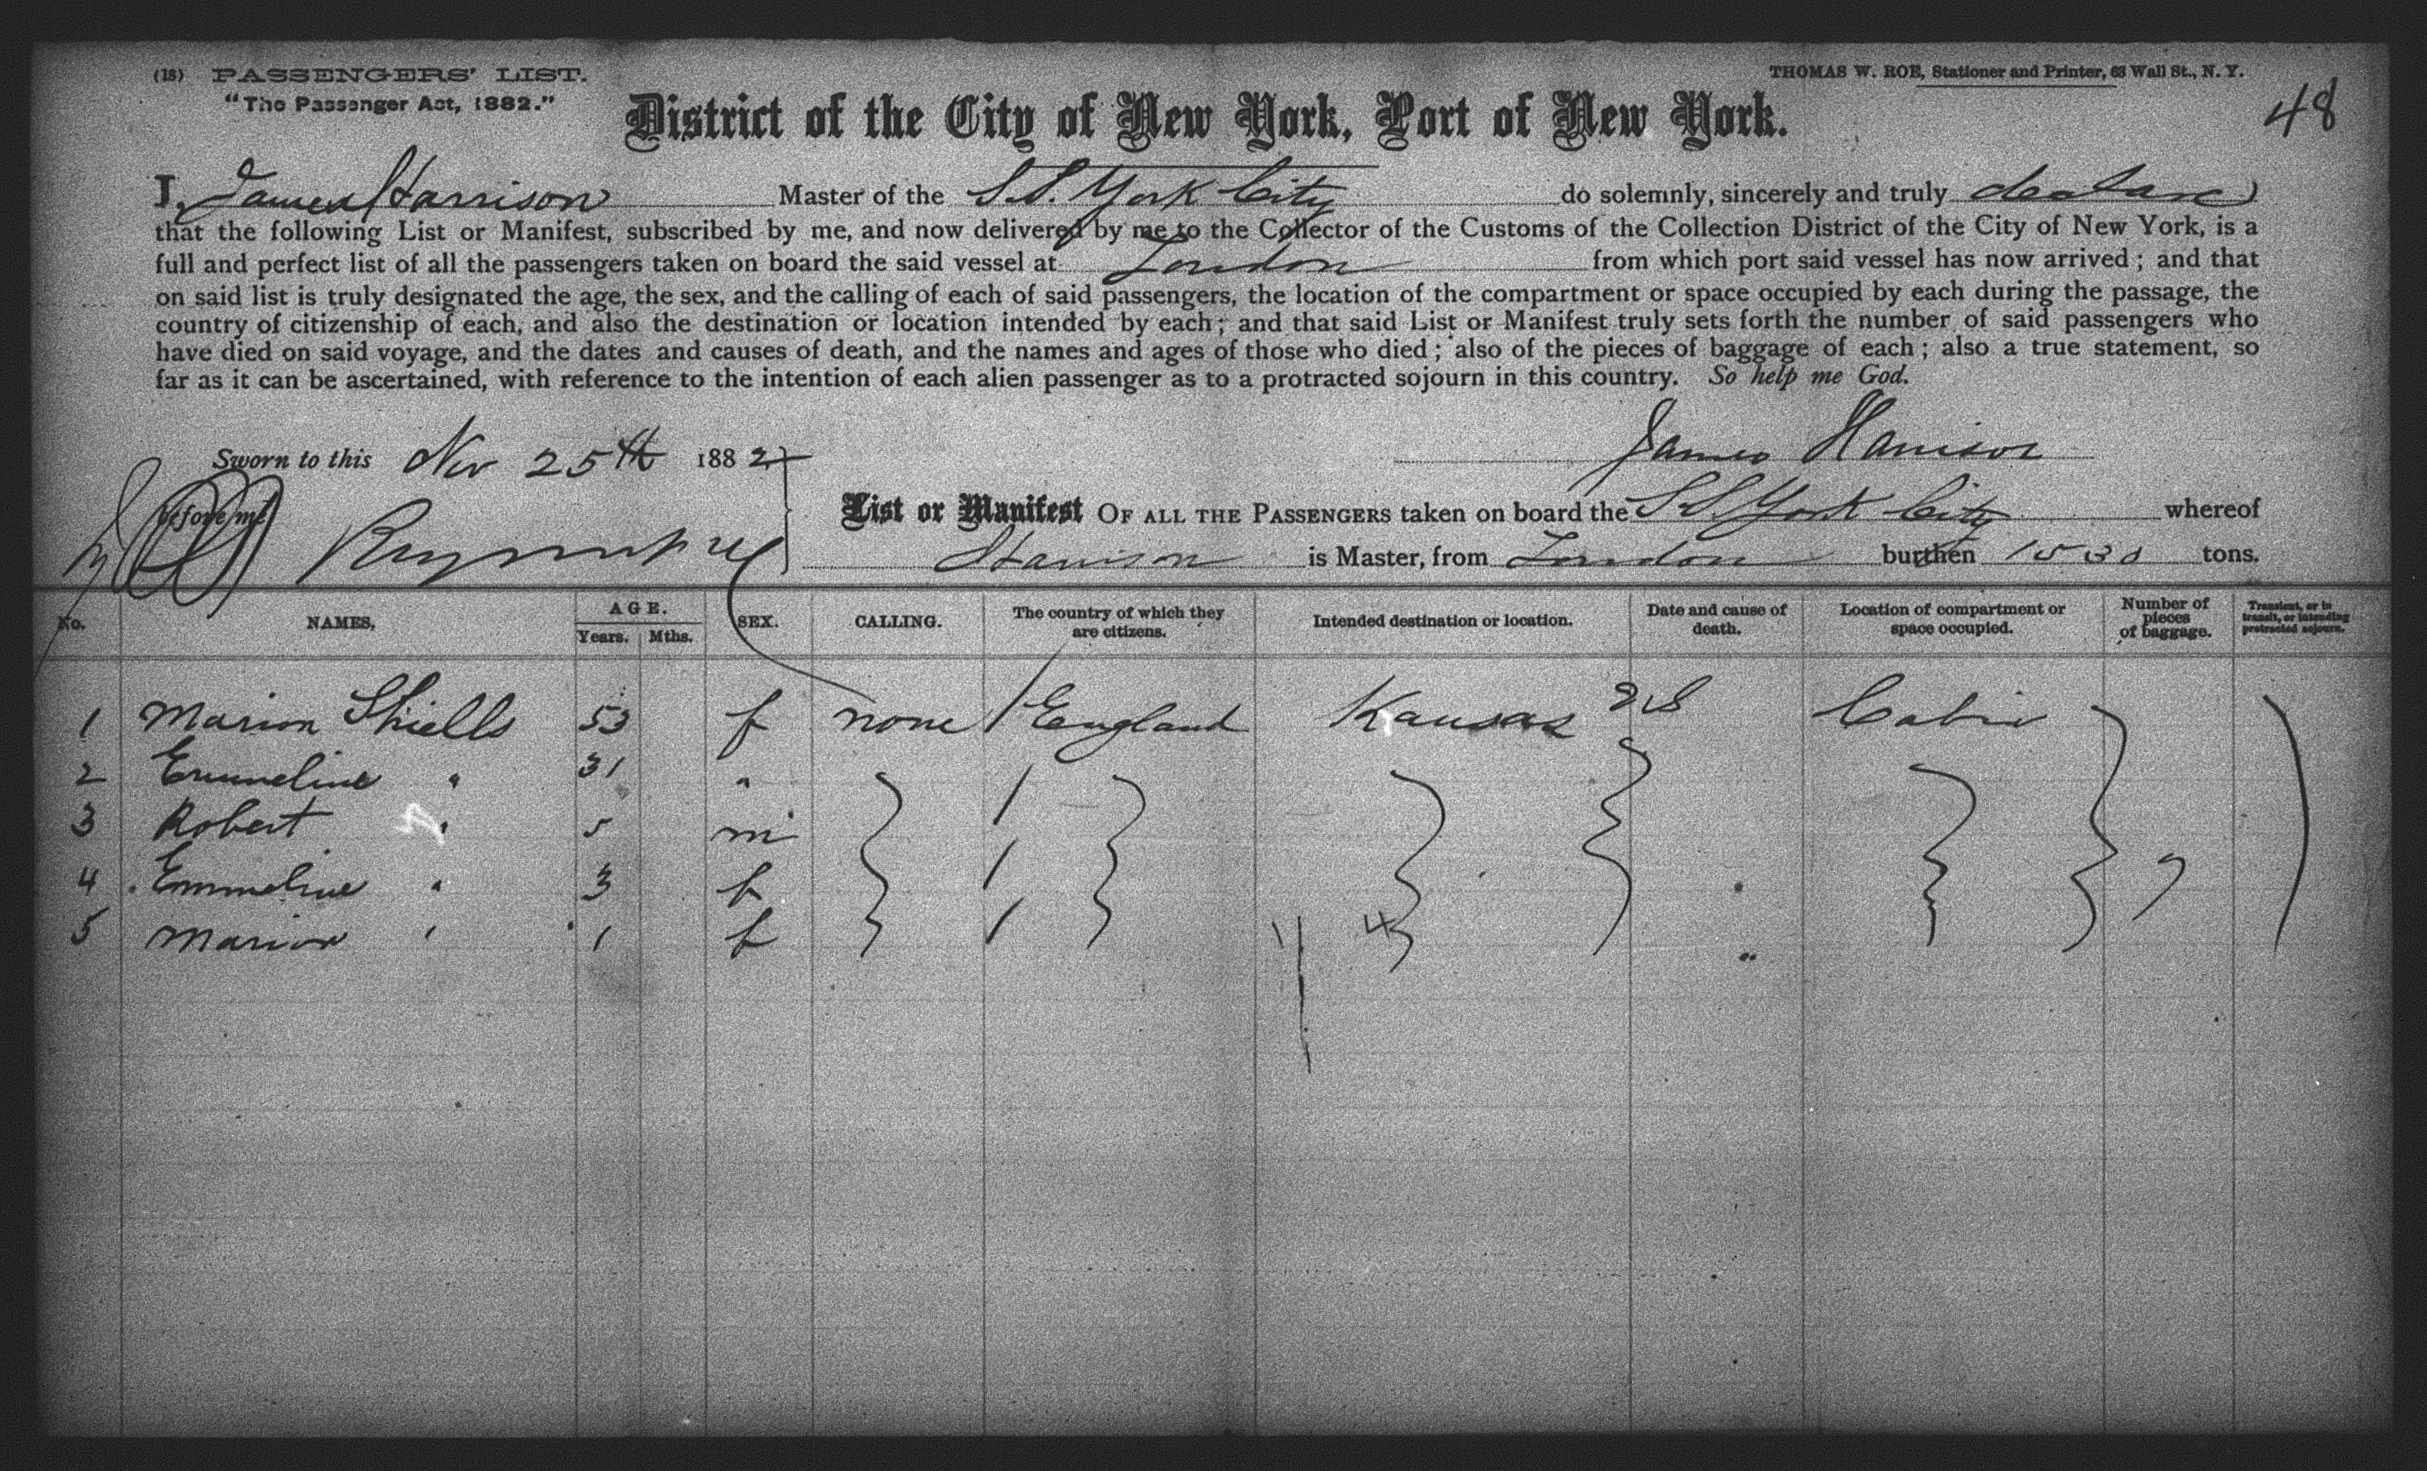 (18) PASSENGERS' LIST.
"The Passenger Act, 1882."
THOMAS W. ROE, Stationer and Printer, 63 Wall St., N. Y.
48
District of the City of New York, Port of New York.
I, James Harrison Master of the S.S. York City do solemnly, sincerely and truly declare
that the following List or Manifest, subscribed by me, and now delivered by me to the Collector of the Customs of the Collection District of the City of New York, is a
full and perfect list of all the passengers taken on board the said vessel at London from which port said vessel has now arrived; and that
on said list is truly designated the age, the sex, and the calling of each of said passengers, the location of the compartment or space occupied by each during the passage, the
country of citizenship of each, and also the destination or location intended by each; and that said List or Manifest truly sets forth the number of said passengers who
have died on said voyage, and the dates and causes of death, and the names and ages of those who died; also of the pieces of baggage of each; also a true statement, so
far as it can be ascertained, with reference to the intention of each alien passenger as to a protracted sojourn in this country. So help me God.
Sworn to this Nov 25th 1882
James Harrison
before me
List or Manifest OF ALL THE PASSENGERS taken on board the S.S. York City whereof
Harrison is Master, from London burthen 1530 tons.
No. NAMES, AGE. Years. Mths. SEX. CALLING. The country of which they are citizens. Intended destination or location. Date and cause of death. Location of compartment or space occupied. Number of pieces of baggage. Transient, or in transit, or intending protracted sojourn.
1 Marion Shiells 53 f none / England Kansas Cabin
2 Emmeline " 31 " /
3 Robert " 5 m /
4 Emmeline " 3 f / 7
5 Marion " 1 f / 4